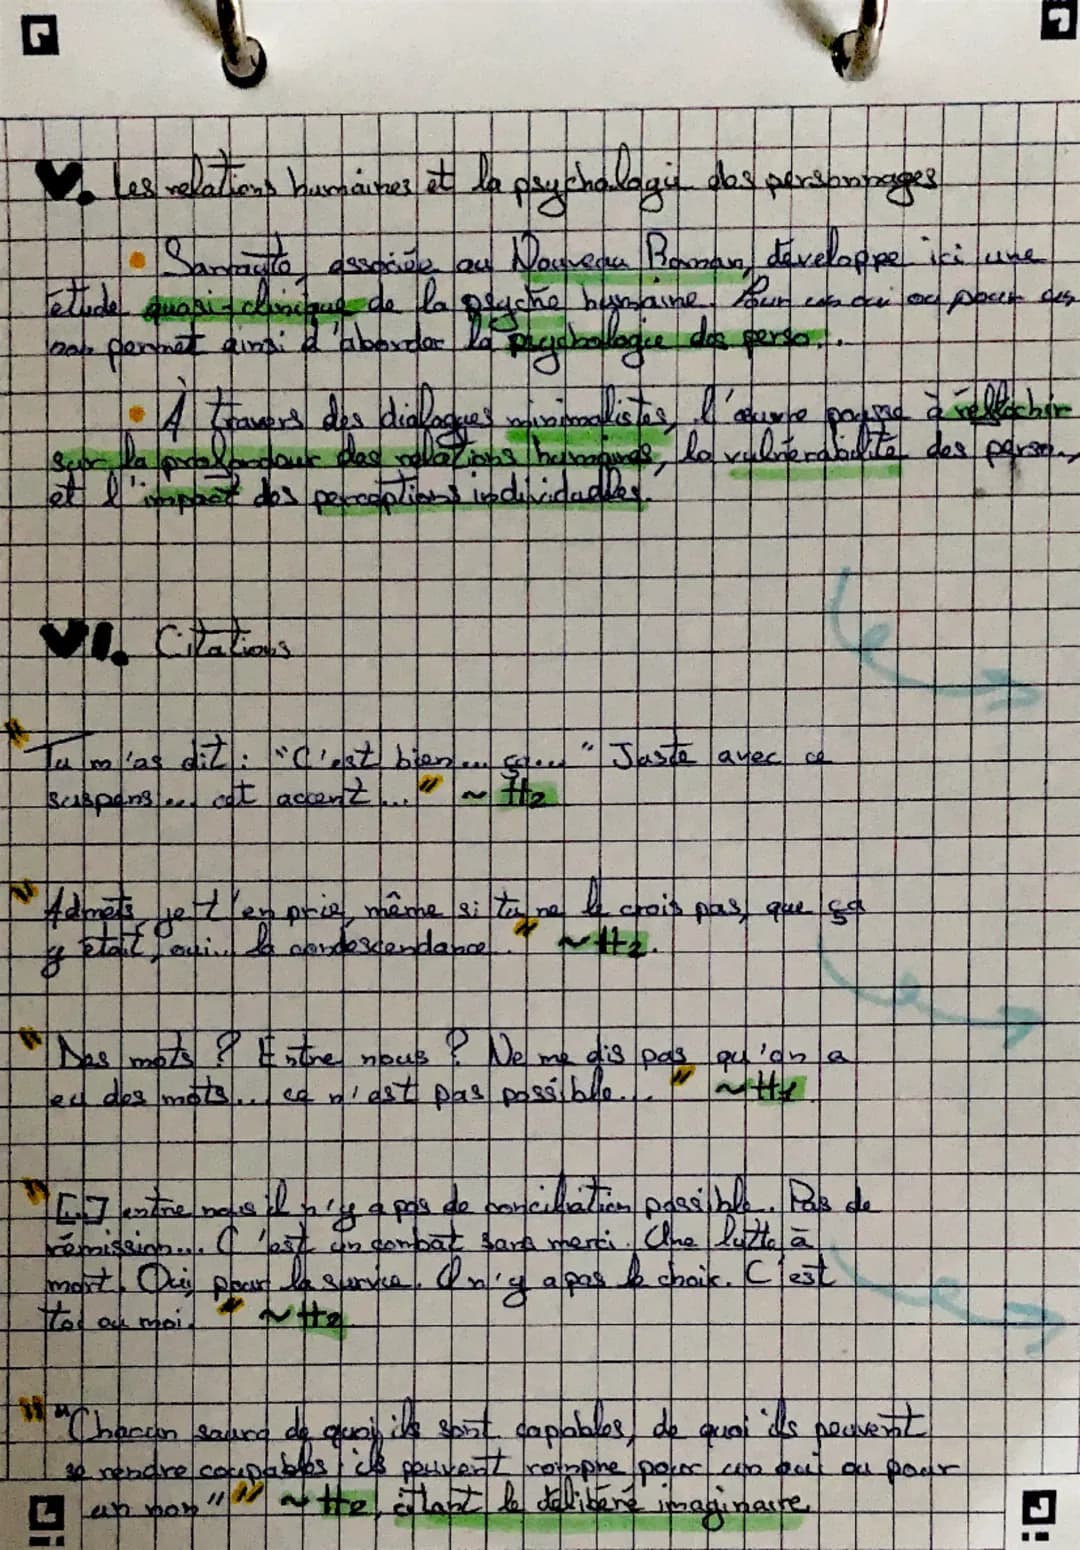 V. Les relations humaines et la psychologie des personnages
• Sarraute, associée au Nouveau Roman, développe ici une
étude quasi-clinique de la psyché humaine. Pour un oui ou pour un
non permet ainsi d'aborder la psychologie des perso...
• À travers des dialogues minimalistes, l'œuvre pousse à réfléchir
sur la profondeur des relations humaines, la vulnérabilité des perso.,
et l'impact des perceptions individuelles.
VI. Citations
"Tu m'as dit : "C'est bien... ça..." Juste avec ce
suspens... cet accent..." ~ H2
"Admets, je t'en prie, même si tu ne le crois pas, que ça
y était, oui... la condescendance." ~ H2.
"Des mots ? Entre nous ? Ne me dis pas qu'on a
eu des mots... ça n'est pas possible..." ~ H1.
"[...] entre nous il n'y a pas de conciliation possible. Pas de
rémission... C'est un combat sans merci. Une lutte à
mort. Oui, pour la survie. Il n'y a pas le choix. C'est
toi ou moi." ~ H2
" "Chacun saura de quoi ils sont capables, de quoi ils peuvent
se rendre coupables : ils peuvent rompre pour un oui ou pour
un non" " ~ H2, citant le délibéré imaginaire